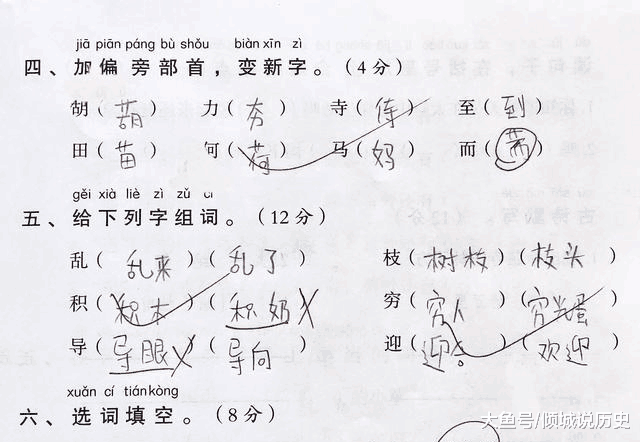 jiā piān páng bù shǒu biàn xīn zì
四、加偏旁部首，变新字。（4分）
胡（葫） 力（夯） 寺（侍） 至（到）
田（苗） 何（荷） 马（妈） 而（需）
gěi xià liè zì zǔ cí
五、给下列字组词。（12分）
乱（乱来）（乱了） 枝（树枝）（枝头）
积（积本）（积奶） 穷（穷人）（穷光蛋）
导（导眼）（导向） 迎（迎客）（欢迎）
xuǎn cí tiánkòng
六、选词填空。（8分）
大鱼号/倾城说历史